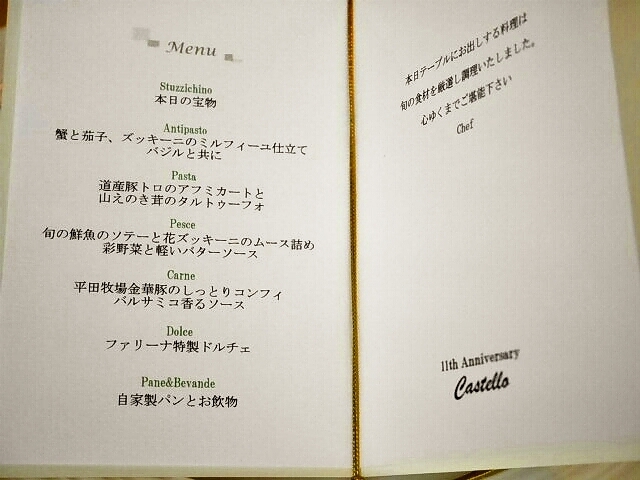 Menu
Stuzzichino
本日の宝物
Antipasto
蟹と茄子、ズッキーニのミルフィーユ仕立て
バジルと共に
Pasta
道産豚トロのアフミカートと
山えのき茸のタルトゥーフォ
Pesce
旬の鮮魚のソテーと花ズッキーニのムース詰め
彩野菜と軽いバターソース
Carne
平田牧場金華豚のしっとりコンフィ
バルサミコ香るソース
Dolce
ファリーナ特製ドルチェ
Pane&Bevande
自家製パンとお飲物
本日テーブルにお出しする料理は
旬の食材を厳選し調理いたしました。
心ゆくまでご堪能下さい
Chef
11th Anniversary
Castello